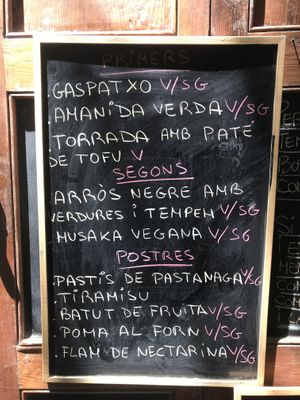 PRIMERS
.GASPATXO V/SG
.AMANIDA VERDA V/SG
.TORRADA AMB PATÉ
DE TOFU V
SEGONS
.ARRÒS NEGRE AMB
VERDURES i TEMPEH V/SG
.MUSAKA VEGANA V/SG
POSTRES
.PASTÍS DE PASTANAGA V/SG
.TIRAMISU
.BATUT DE FRUITA V/SG
.POMA AL FORN V/SG
.FLAM DE NECTARINA V/SG